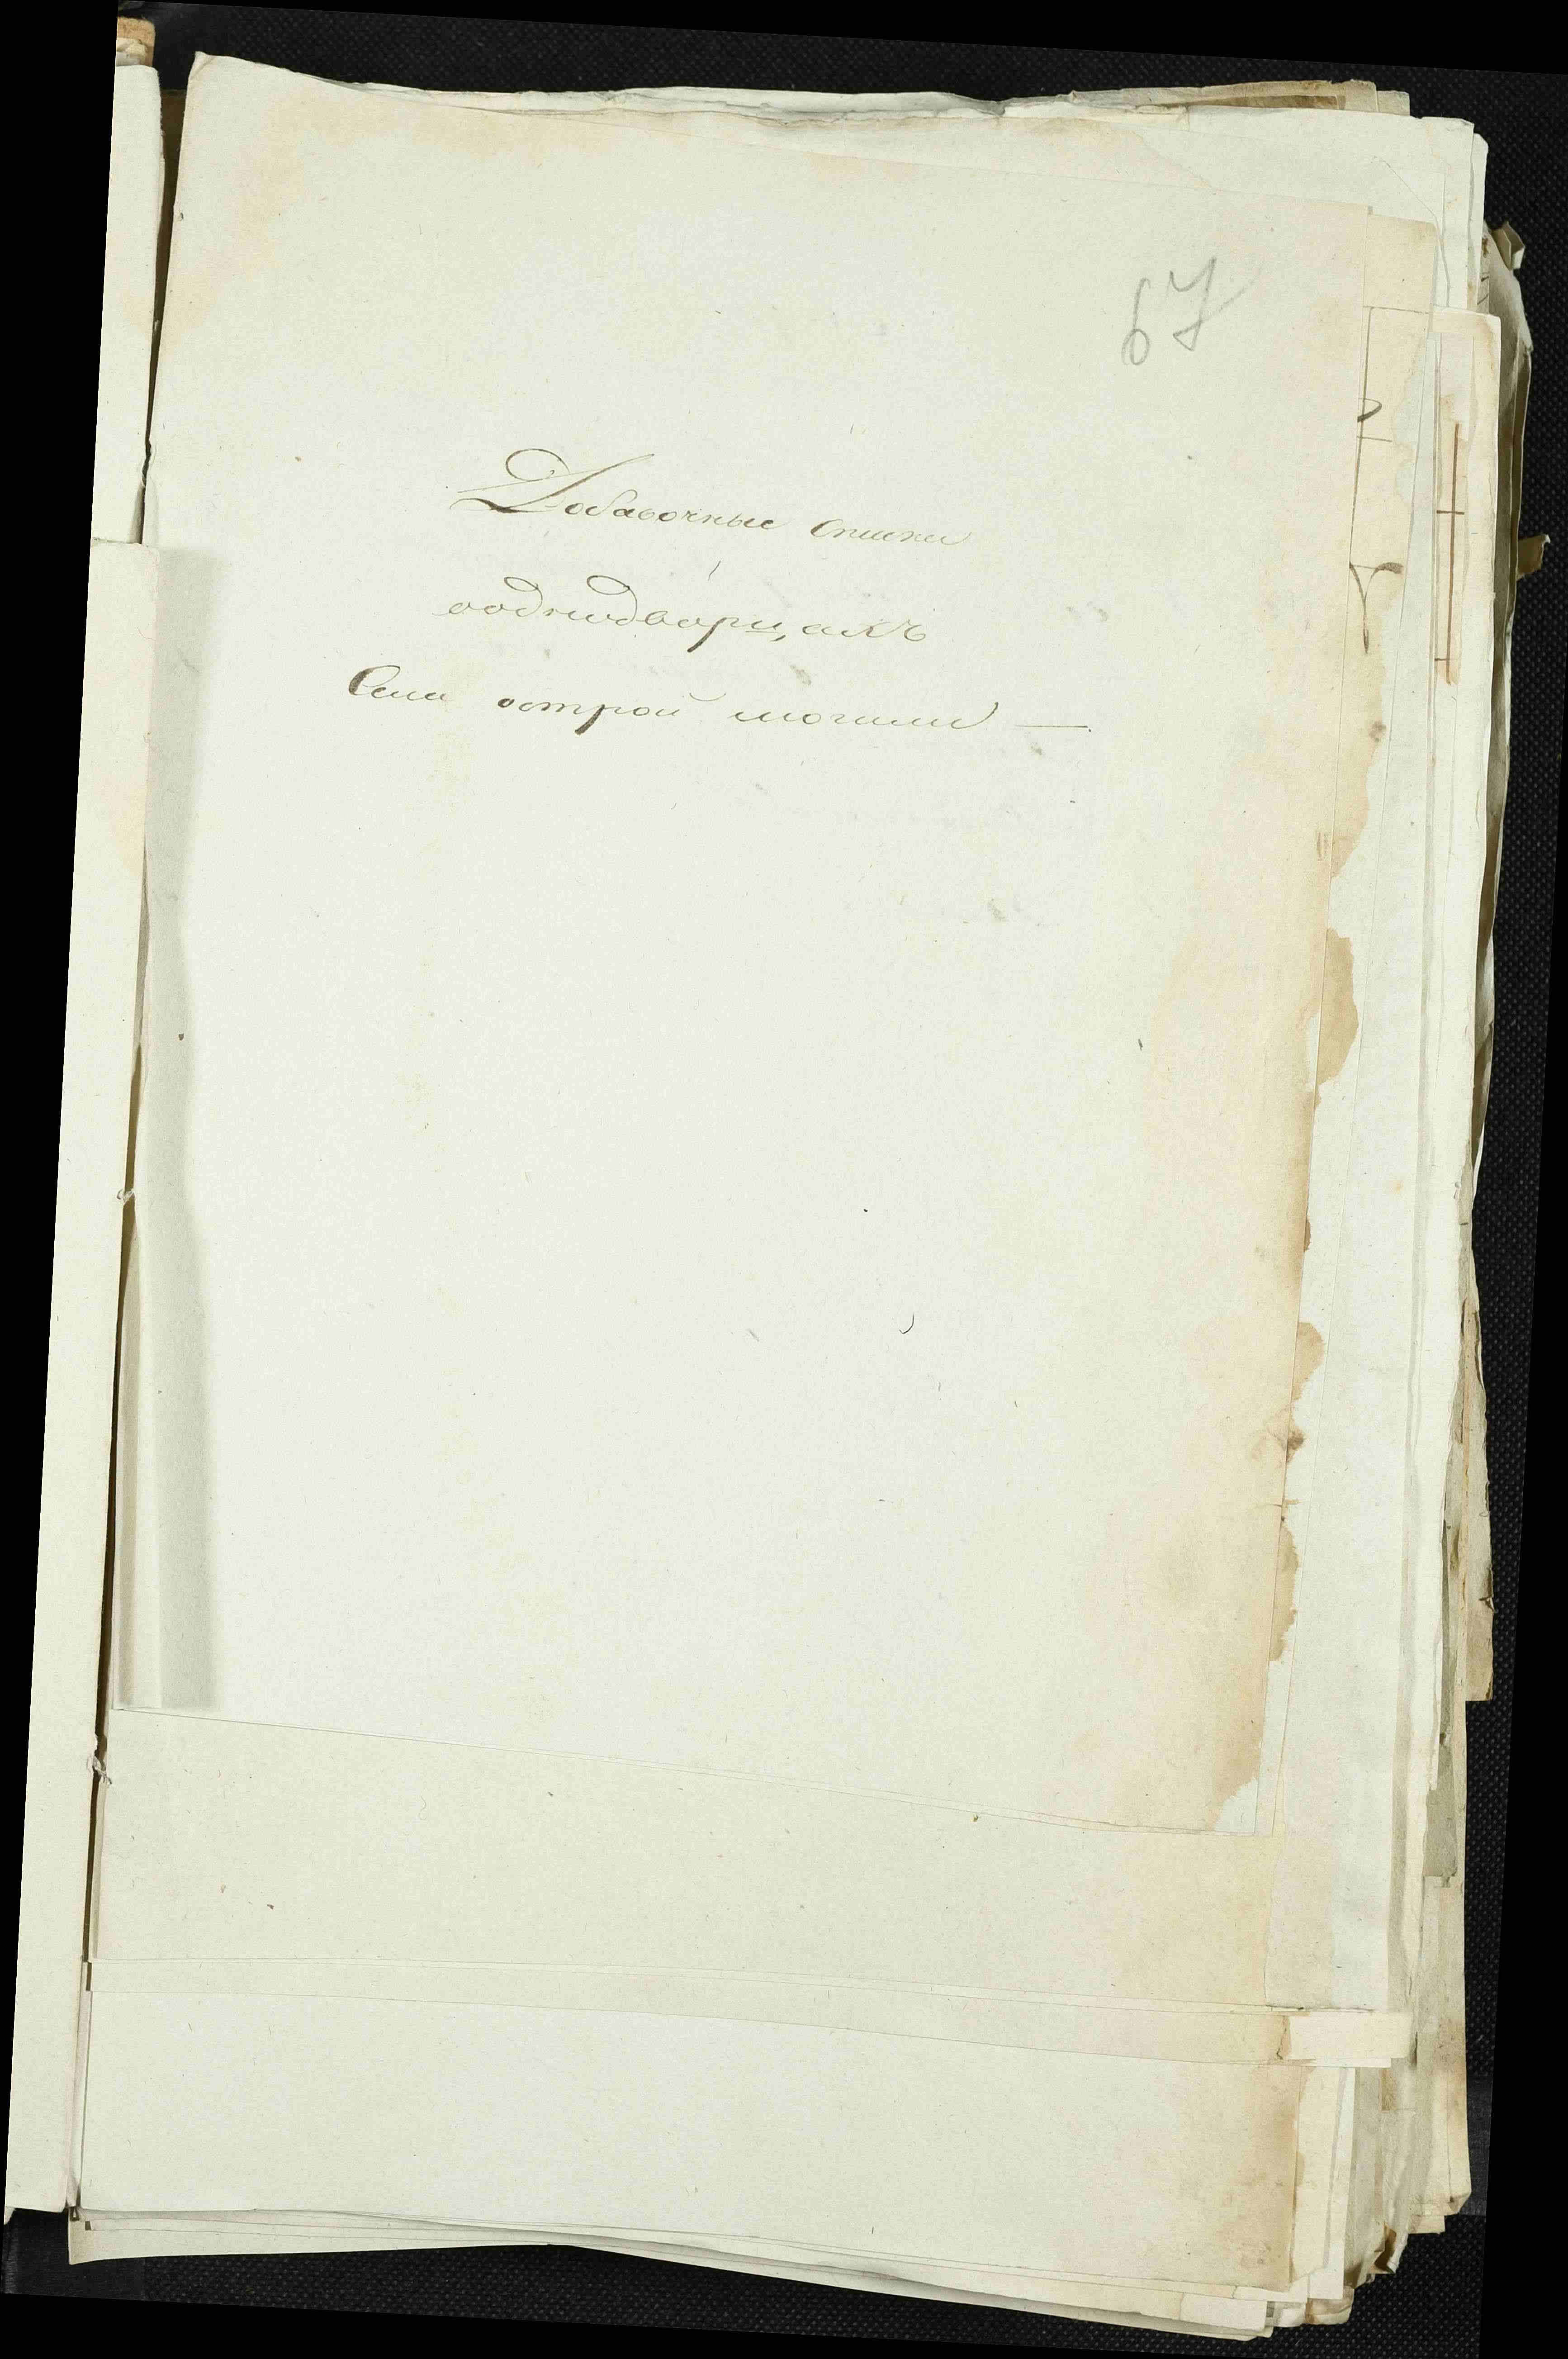 67
Добавочные списки
оодноδворцахъ
Села острой могили —